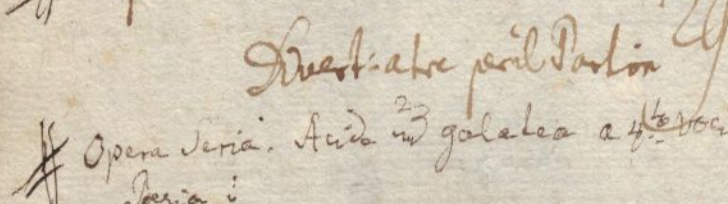 Divert: a tre per il Pariton
Opera Seria. Acide und galatea a 4tro voci